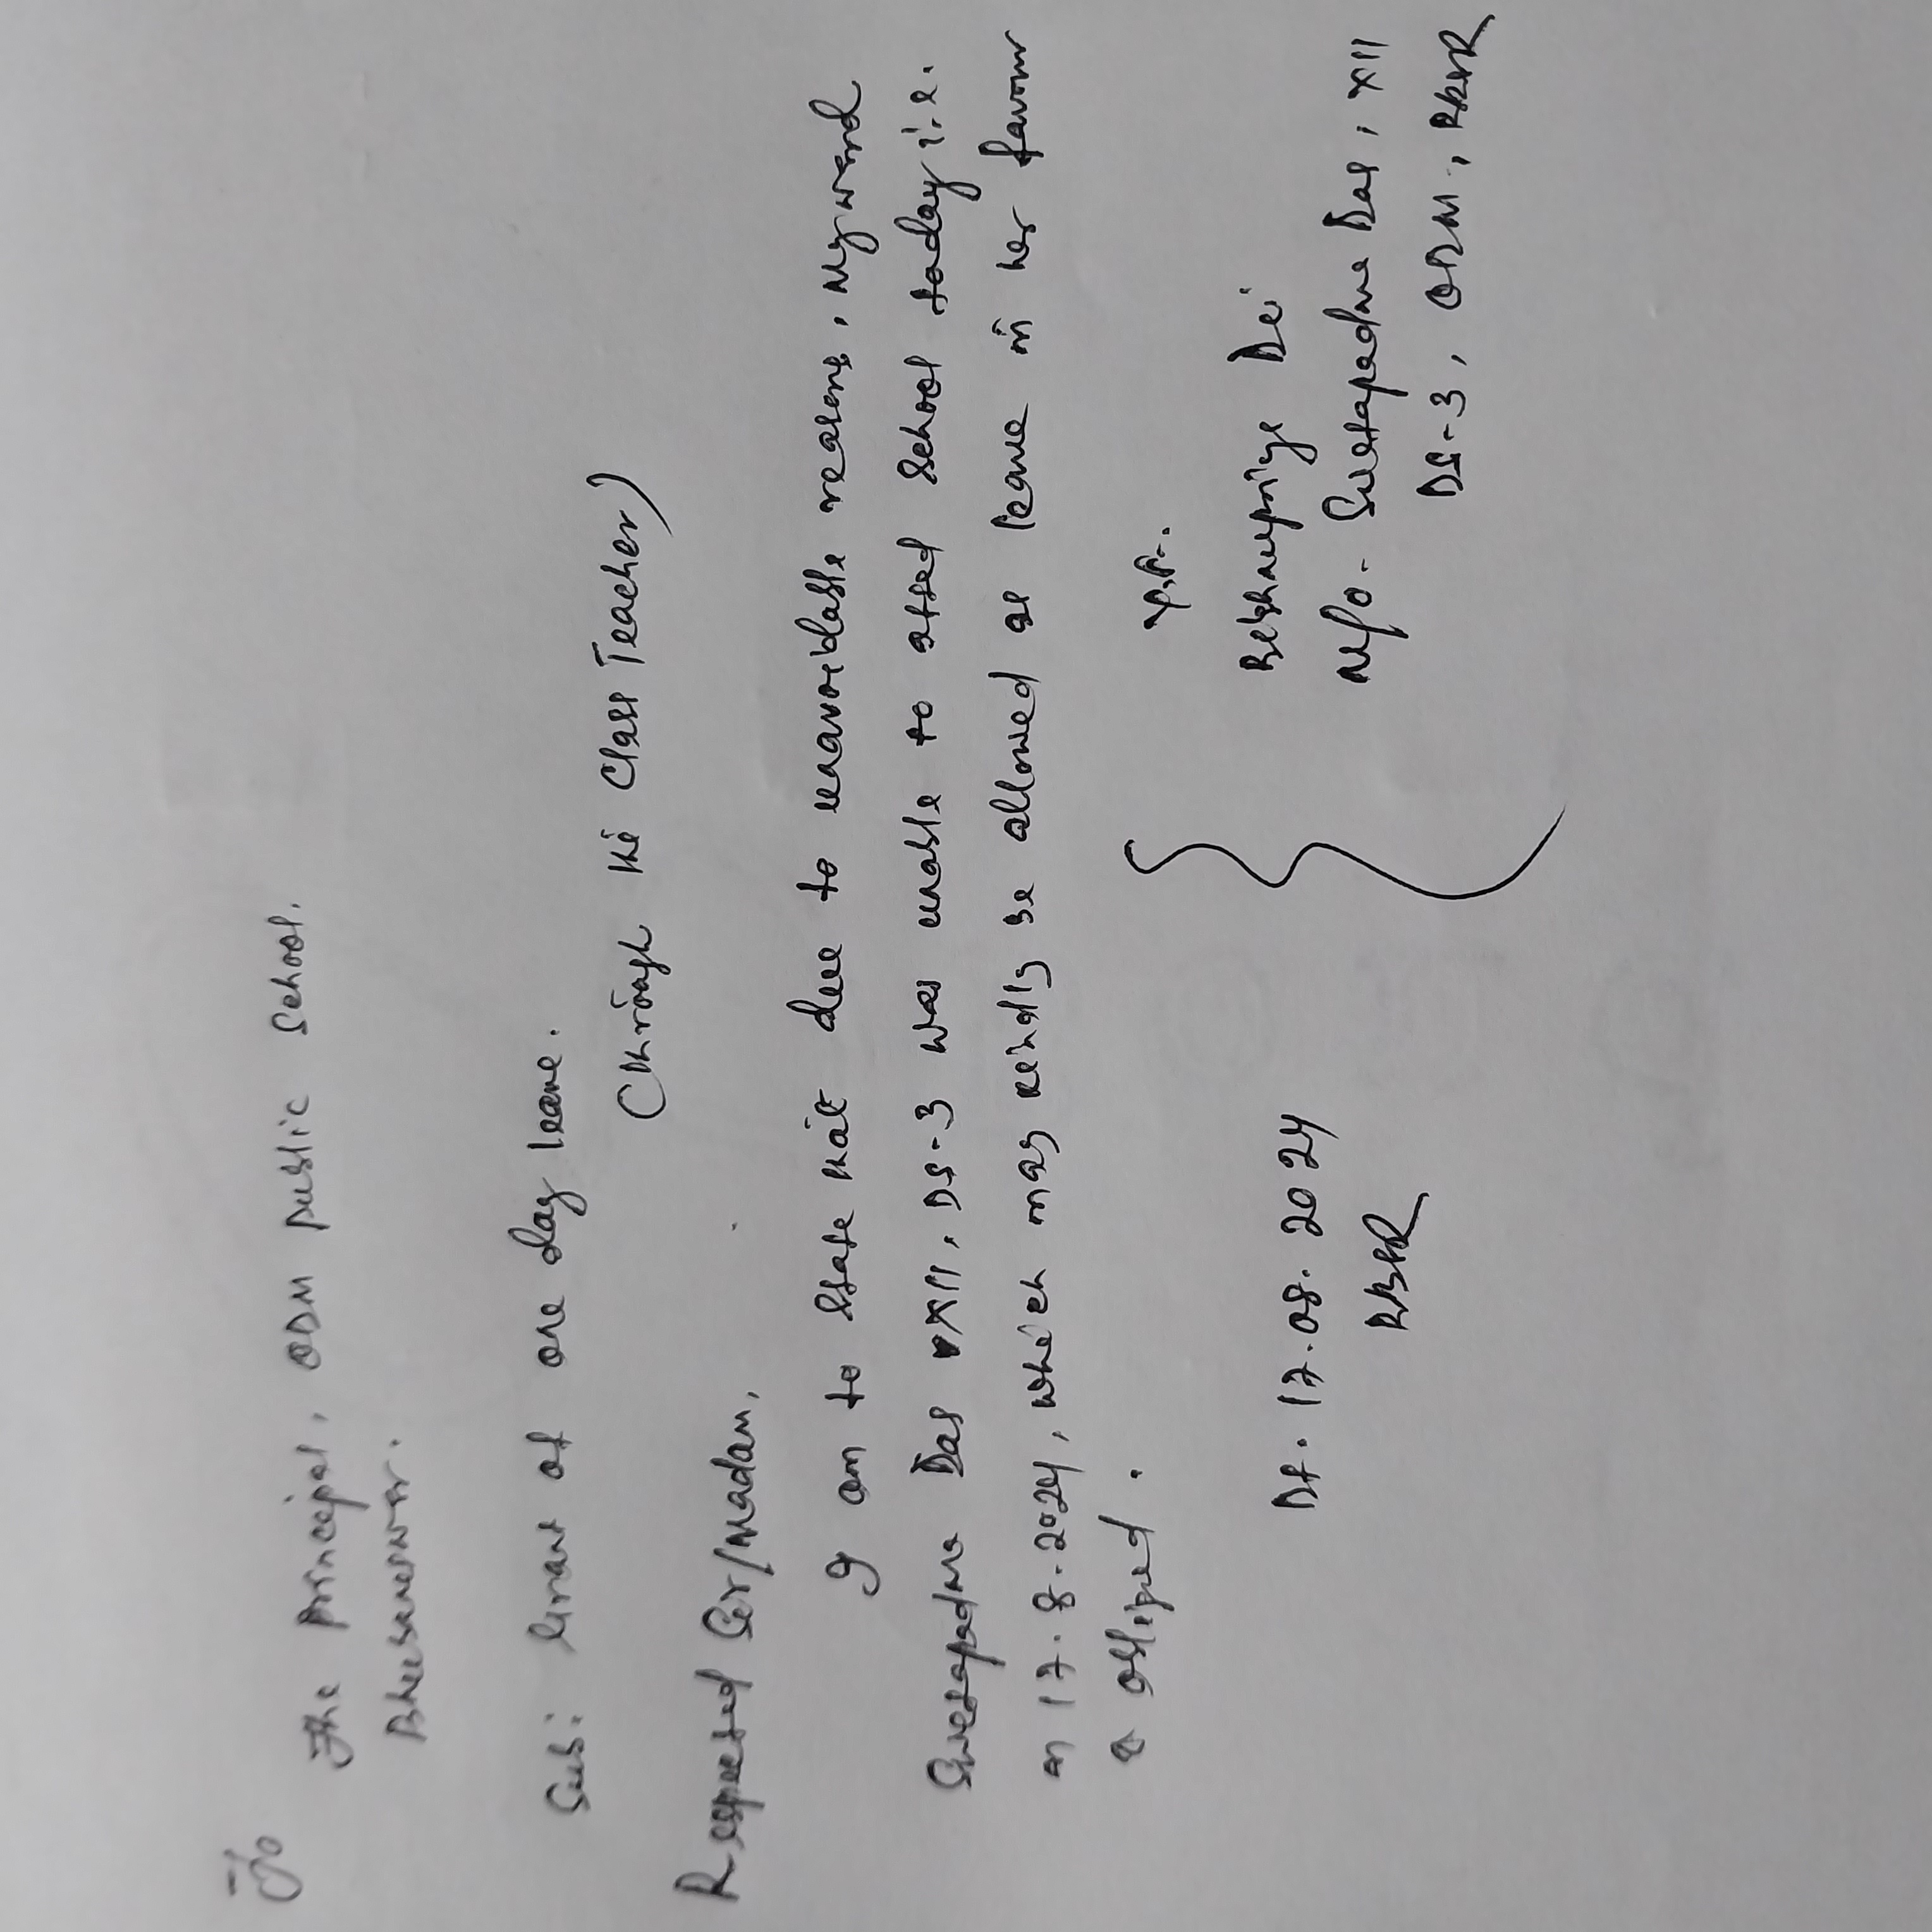 To
The Principal, ODM Public School.
Bhubaneswar.
Sub: Grant of one day leave.
(Through the Class Teacher)
Respected Sir/Madam,
I am to state that due to unavoidable reasons, My ward
Swetapadma Das XII, DS-3 was unable to atted School today i.e.
on 17.8.2024, which may kindly be allowed as leave in her favour
& obliged.
Y.F.
Dt. 17.08.2024
BBSR
Dei
M/o- Swetapadma Das, XII
DS-3, ODM, BBSR